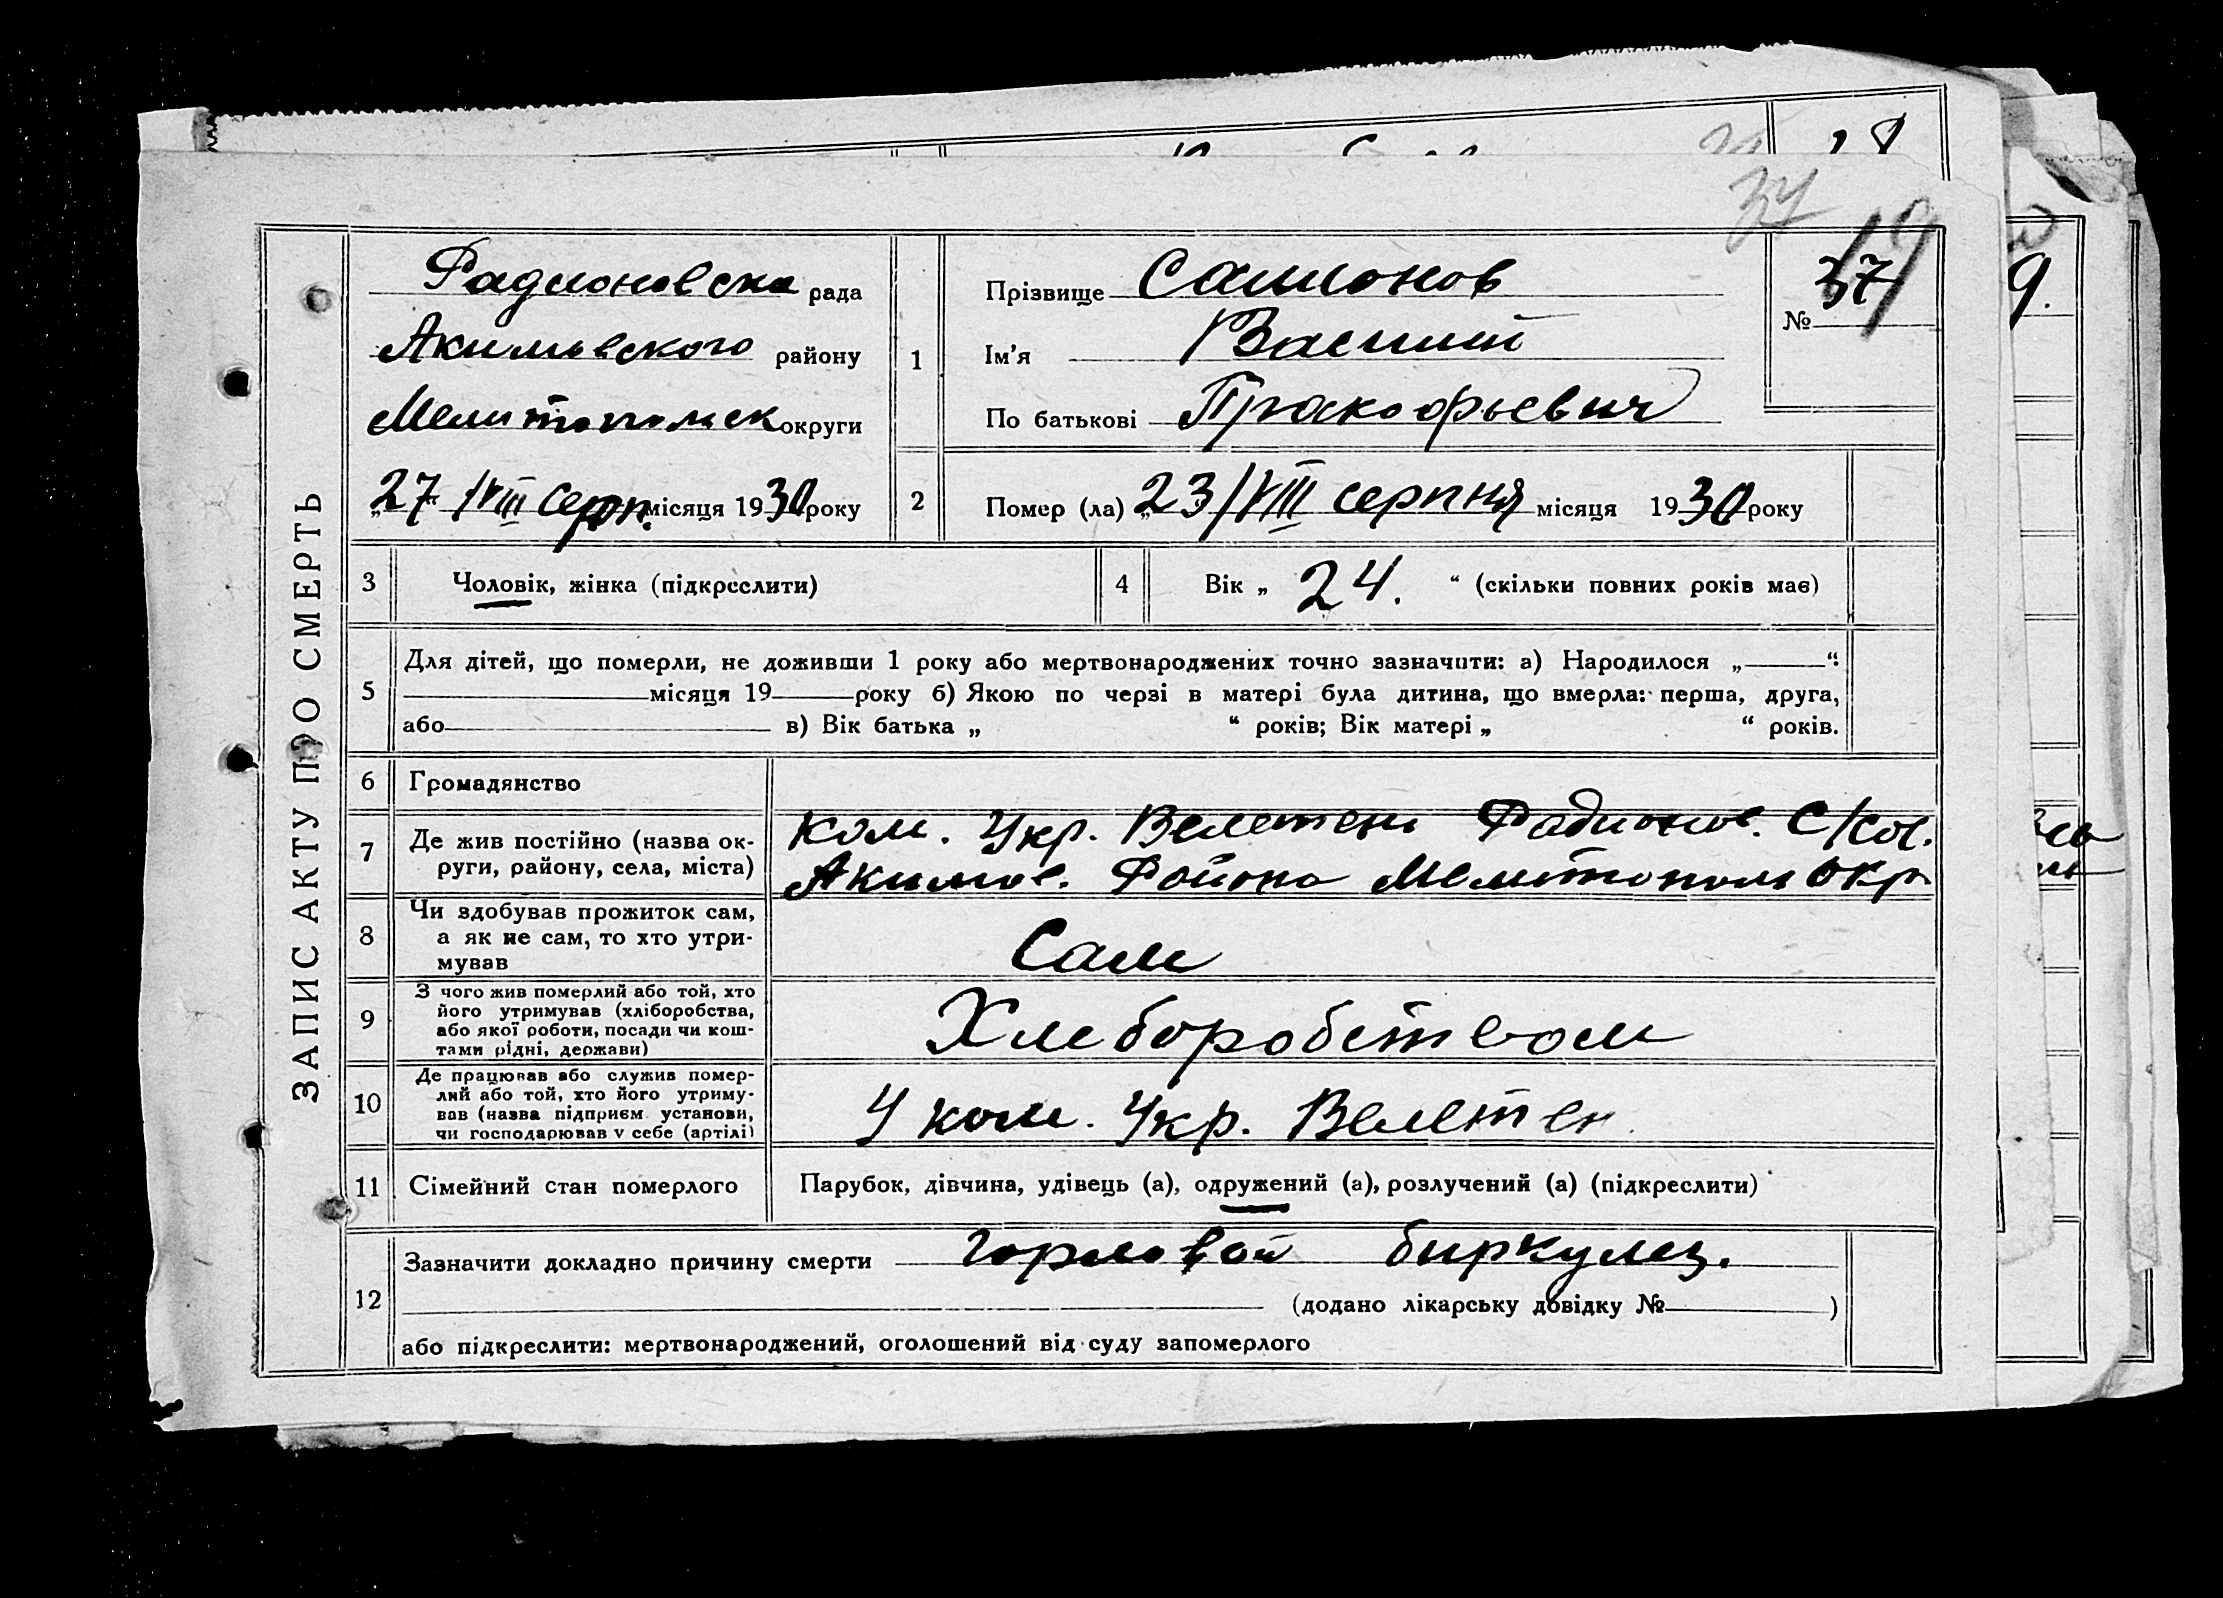 ЗАПИС АКТУ ПРО СМЕРТЬ
34
Радионовска рада
Акимовского району
Мелитопольск округи
„27“ /VIII серп. місяця 1930 року
1
Прізвище Самионов
Ім’я Василий
По батькові Прокофьевич
№ 37 19
2
Помер (ла) „23/VIII серпня місяця 1930 року
3
Чоловік, жінка (підкреслити)
4
Вік „ 24. “ (скільки повних років має)
5
Для дітей, що померли, не доживши 1 року або мертвонароджених точно зазначити: а) Народилося „ “
місяця 19 року б) Якою по черзі в матері була дитина, що вмерла: перша, друга,
або в) Вік батька „ “ років; Вік матері „ “ років.
6
Громадянство
7
Де жив постійно (назва ок-
руги, району, села, міста)
Ком. Укр. Велетень Радионов. С/сов.
Акимов. Района Мелитополь окр
8
Чи здобував прожиток сам,
а як не сам, то хто утри-
мував
Сам
9
З чого жив померлий або той, хто
його утримував (хліборобства,
або якої роботи, посади чи кош-
тами рідні, держави)
Хлеборобством
10
Де працював або служив помер-
лий або той, хто його утриму-
вав (назва підприєм. установи,
чи господарював у себе (артілі)
У ком. Укр. Велетен
11
Сімейний стан померлого
Парубок, дівчина, удівець (а), одружений (а), розлучений (а) (підкреслити)
12
Зазначити докладно причину смерти горловой биркулез.
(додано лікарську довідку № )
або підкреслити: мертвонароджений, оголошений від суду запомерлого